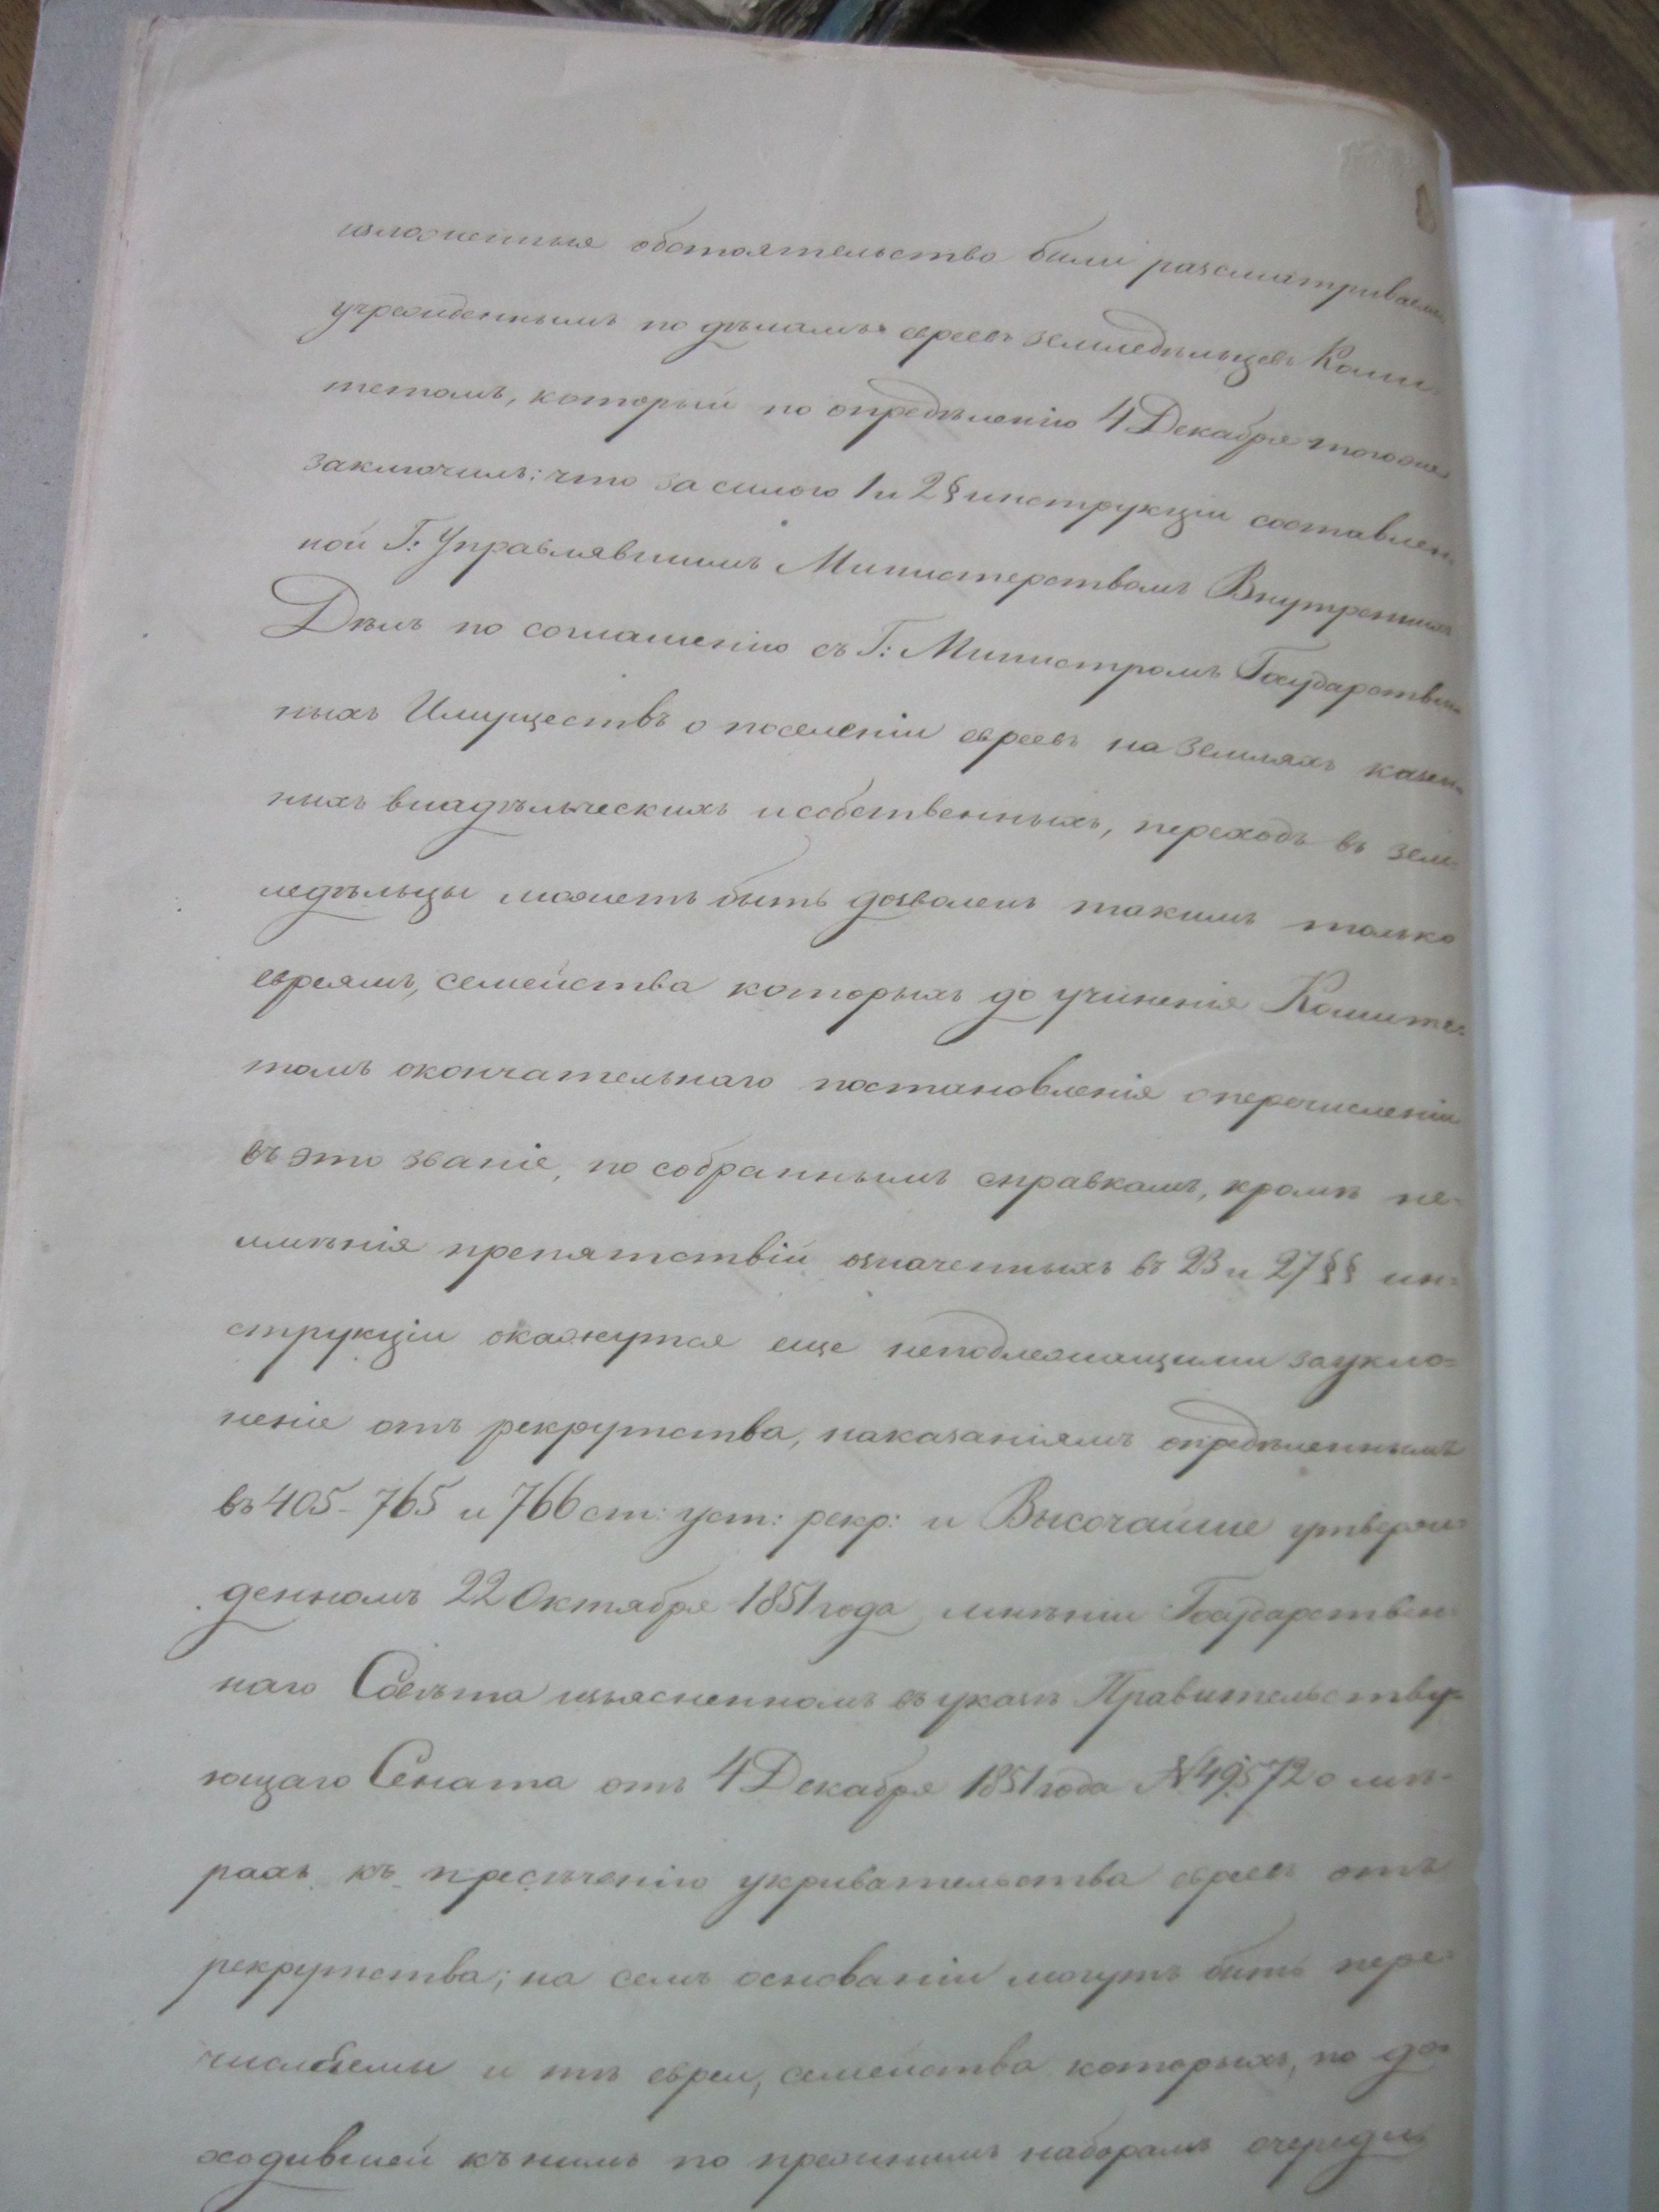 изложенныя обстоятельства были разсматриваемы
учрежденнымъ по дѣламъ евреевъ земледѣльцевъ Коми-
тетомъ, который по опредѣленію 4 Декабря того же
заключилъ: что за силою 1 и 2 § инструкціи составлен-
ной Г: Управлявшимъ Министерствомъ Внутреннихъ
Дѣлъ по соглашенію съ Г: Министромъ Государствен-
ныхъ Имуществъ о поселеніи евреевъ на земляхъ казен-
ныхъ владѣльческихъ и собственныхъ, переходъ въ зем-
ледѣльцы можетъ быть дозволенъ такимъ только
евреямъ, семейства которыхъ до учиненія Комите-
томъ окончательнаго постановленія о перечисленіи
въ это званіе, по собраннымъ справкамъ, кромѣ не-
имѣнія препятствій означенныхъ въ 23 и 27 §§ ин-
струкціи окажутся еще неподлежащими за укло-
неніе отъ рекрутства, наказаніямъ опредѣленнымъ
въ 405- 765 и 766 ст: уст: рекр: и Высочайше утверж-
денномъ 22 Октября 1851 года мнѣніи Государствен-
наго Совѣта изъясненномъ въ указѣ Правительству-
ющаго Сената отъ 4 Декабря 1851 года № 49572 о мѣ-
рахъ къ пресѣченію укривательства евреевъ отъ
рекрутства; на семъ основаніи могутъ быть пере-
числяемы и тѣ евреи, семейства которыхъ, по до-
ходившей къ нимъ по прежнимъ наборамъ очереди